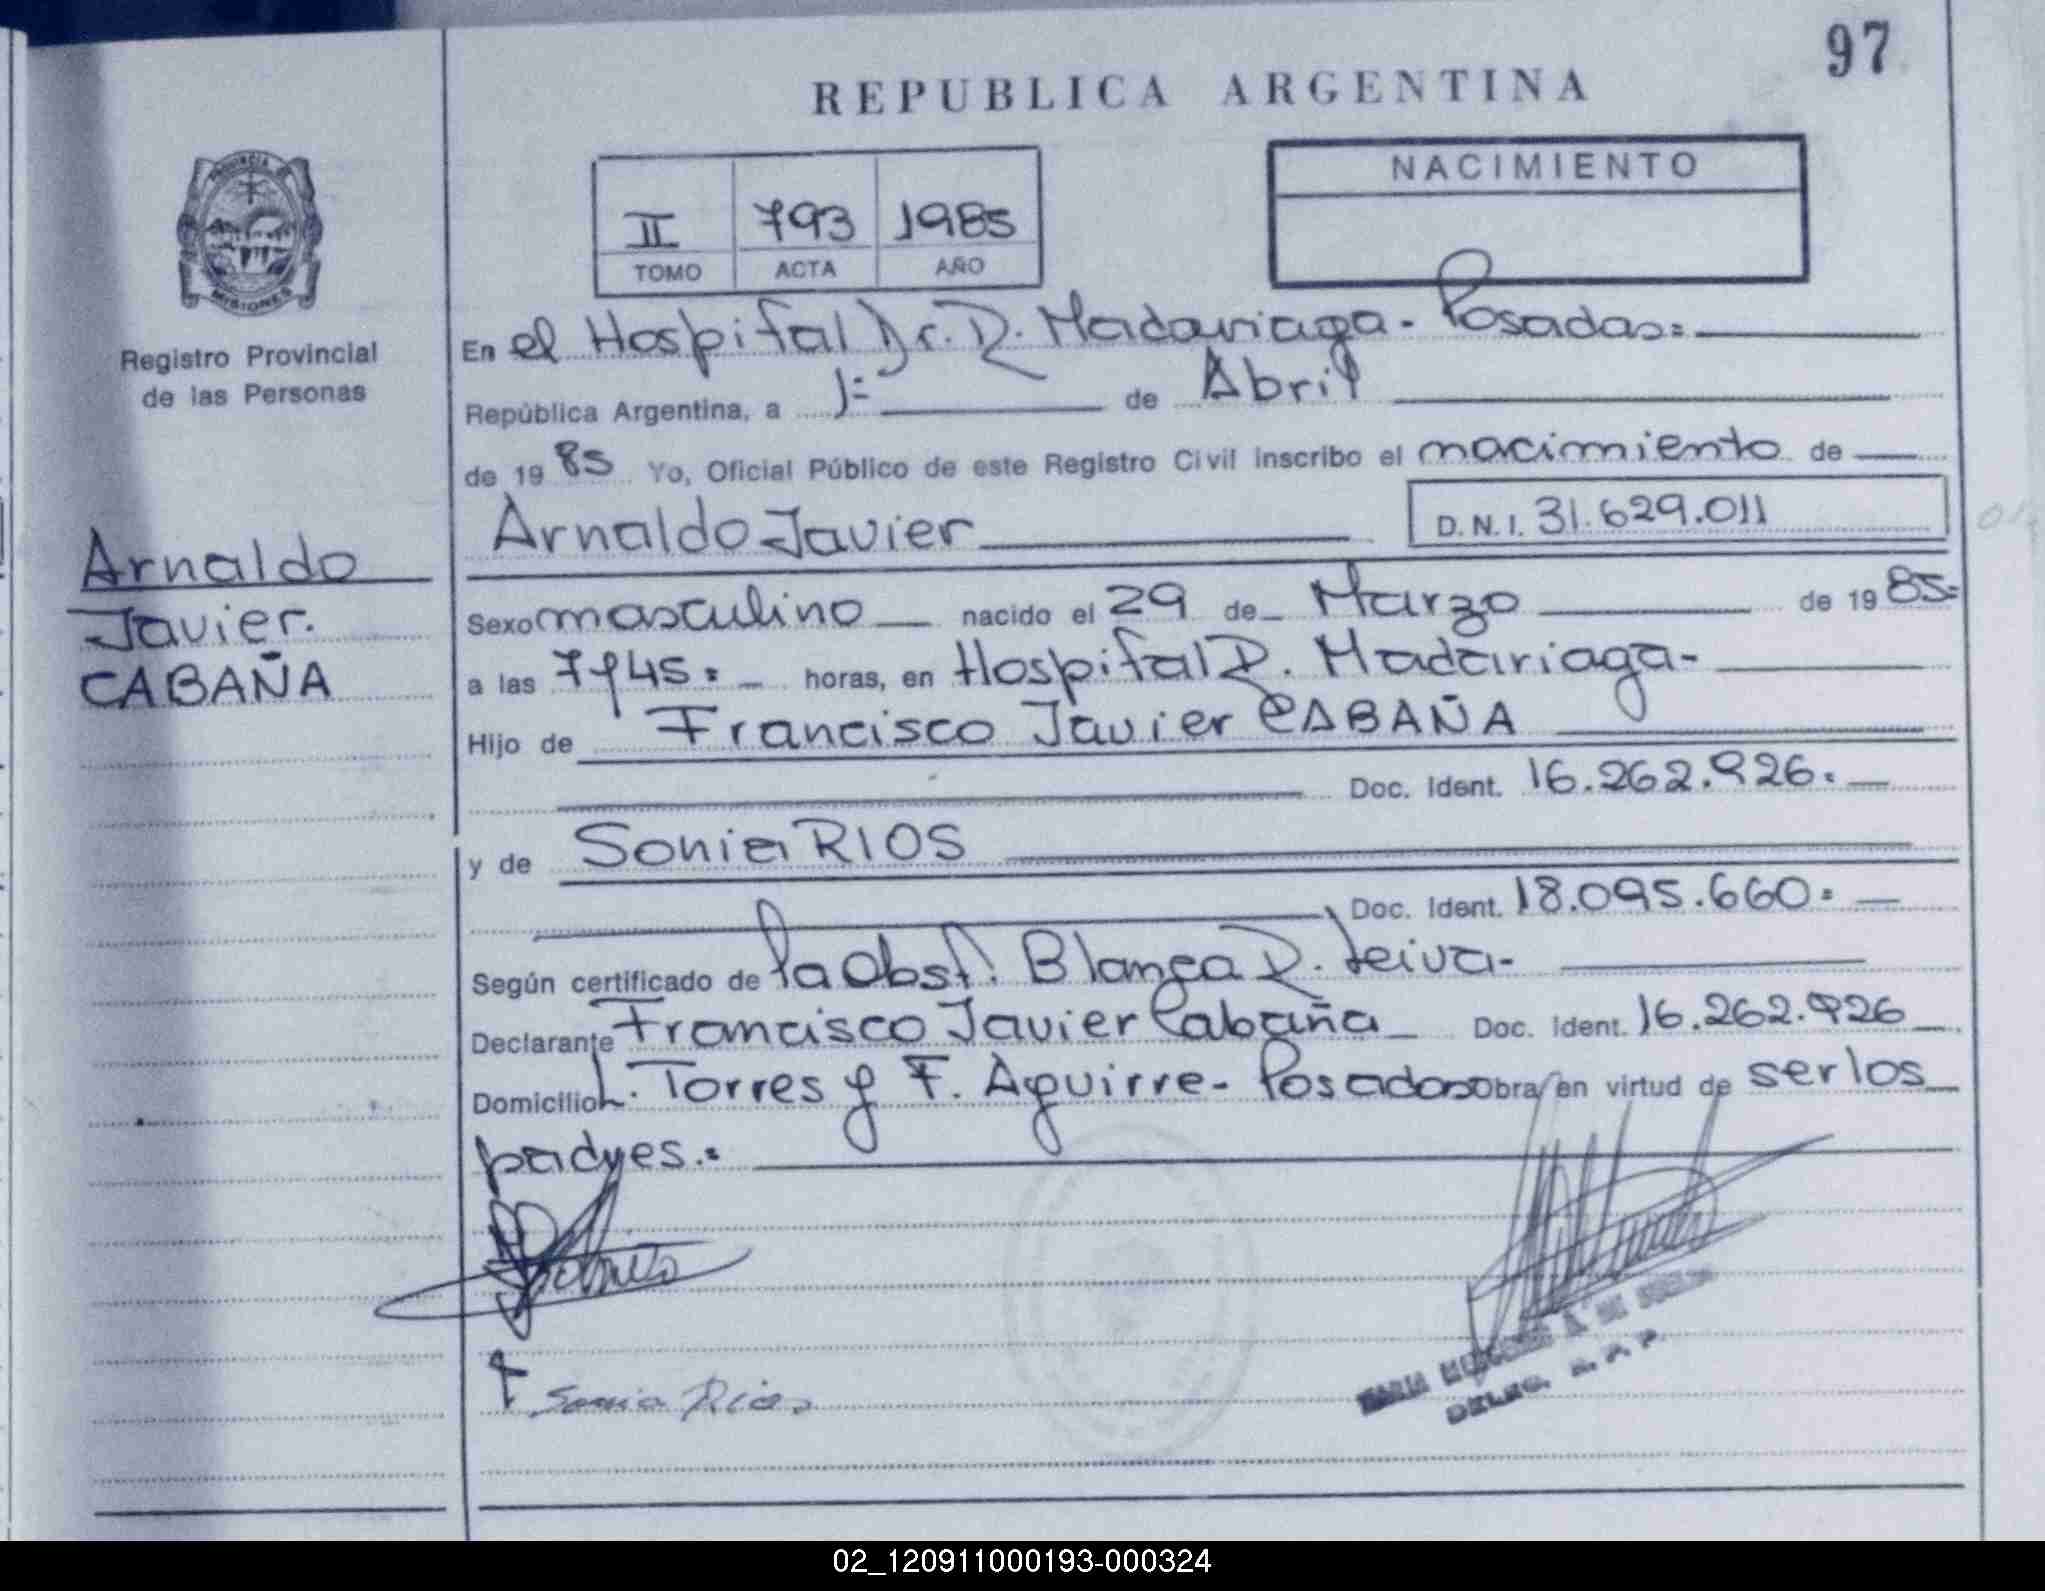 97
REPUBLICA ARGENTINA
NACIMIENTO
II 793 1985
TOMO ACTA AÑO
PROVINCIA DE
MISIONES
Registro Provincial
de las Personas
En el Hospital Dr. R. Madariaga - Posadas=
República Argentina, a 1= de Abril
de 1985 Yo, Oficial Público de este Registro Civil inscribo el nacimiento de
Arnaldo Javier D.N.I. 31.629.011
Arnaldo
Javier.
CABAÑA
Sexo masculino nacido el 29 de Marzo de 1985=
a las 7y45= horas, en Hospital R. Madariaga-
Hijo de Francisco Javier CABAÑA
Doc. Ident. 16.262.926=
y de Sonia RIOS
Doc. Ident. 18.095.660=
Según certificado de la Obst. Blanca R. Leiva-
Declarante Francisco Javier Cabaña Doc. Ident. 16.262.926
Domicilio L. Torres y F. Aguirre - Posadas Obra en virtud de ser los
padres.=
Sonia Rios
MARIA A. DE
DELEG. R. P. P.
02_120911000193-000324